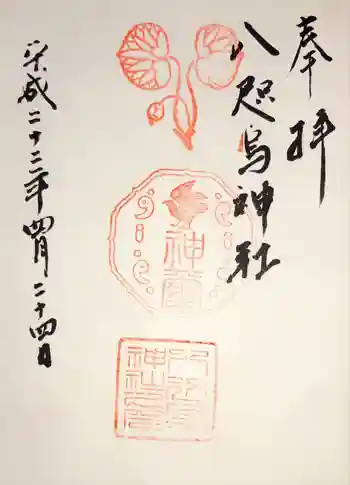 奉拝
八咫烏神社
神璽
八咫烏
神社之印
平成二十二年四月二十四日